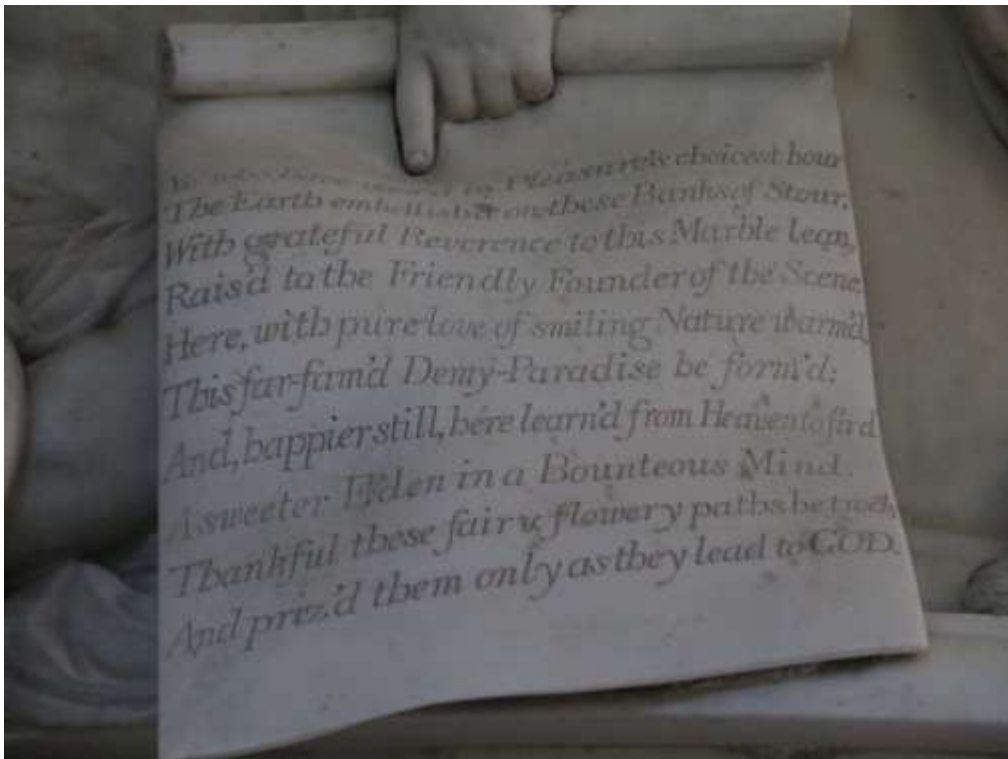 Ye who have view'd in Pleasure's choicest hour
The Earth embellish'd on these Banks of Stour,
With grateful Reverence to this Marble lean,
Rais'd to the Friendly Founder of the Scene
Here, with pure love of smiling Nature warm'd,
This far-fam'd Demy-Paradise he form'd;
And, happier still, here learn'd from Heaven to find
A sweeter Eden in a Bounteous Mind.
Thankful these fair & flowery paths he trod,
And priz'd them only as they lead to GOD.